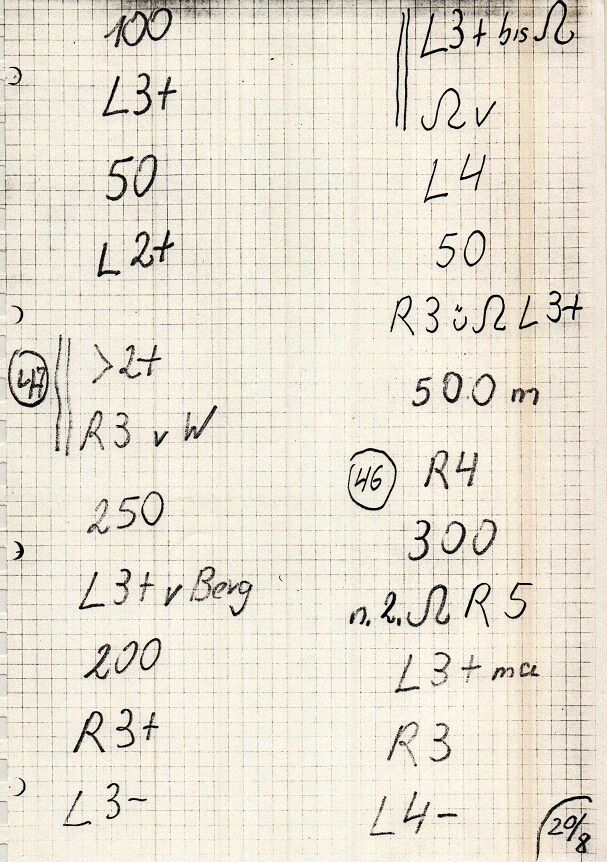 100
L3+
50
L2+
47
>2+
R3 v W
250
L3+ v Berg
200
R3+
L3-
L3+ bis Ω
Ω v
L4
50
R3 ü Ω L3+
500 m
46
R4
300
n. 2. Ω R5
L3+ ma
R3
L4-
20/8